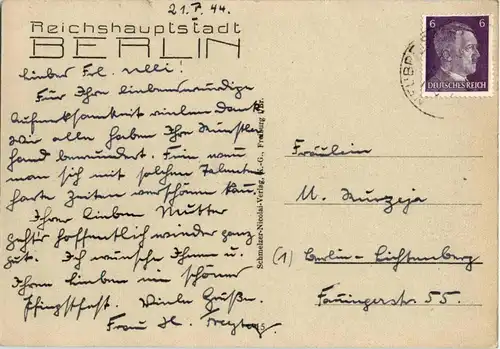 21. 5. 44.
Reichshauptstadt
BERLIN
Liebes Frl. Nelli!
Für Ihre liebenswürdige
Aufmerksamkeit vielen Dank
wir alle haben Ihre Künstler
hand bewundert. Fein wenn
man sich mit solchen Talenten
harte Zeiten verschönen kann.
Ihrer lieben Mutter
geht's hoffentlich wieder ganz
gut. Ich wünsche Ihnen u.
Ihren Lieben ein schönes
Pfingstfest. Viele Grüße.
Frau H. Freytag
Schmelzer-Nicolai-Verlag, K.-G., Freiburg
6 6
DEUTSCHES REICH
Fräulein
M. Kurzeja
(1) Berlin-Lichtenberg
Fanningerstr 55.